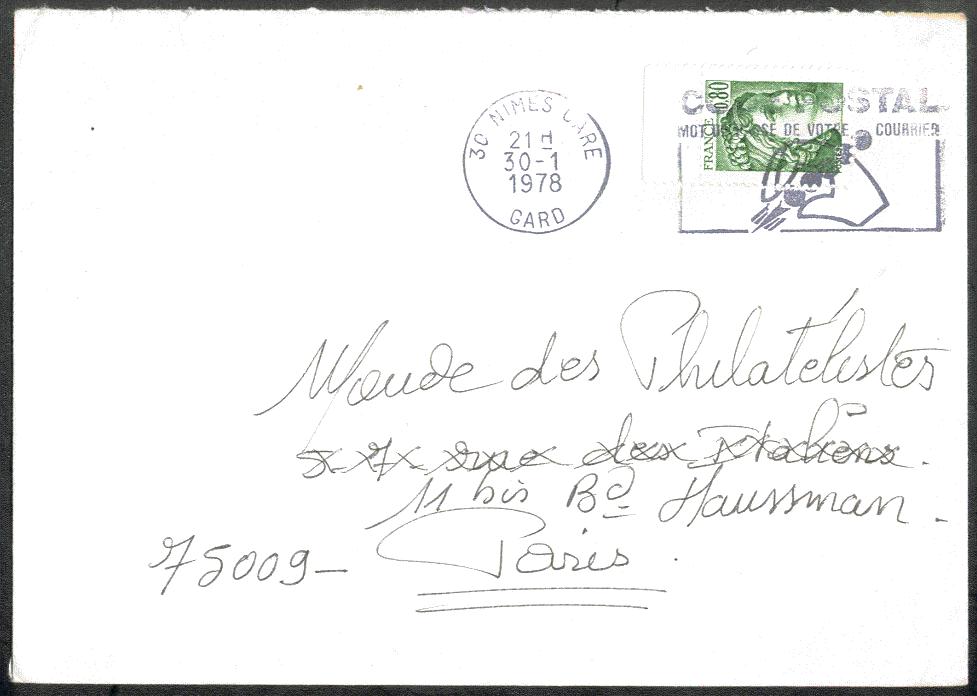 30 NIMES GARE
21 H
30-1
1978
GARD
FRANCE 0,80
CODE POSTAL
MOT DE PASSE DE VOTRE COURRIER
Monde des Philatélistes
5 - 7 - rue des Italiens.
11 bis Bd Haussman.
75009 - Paris.